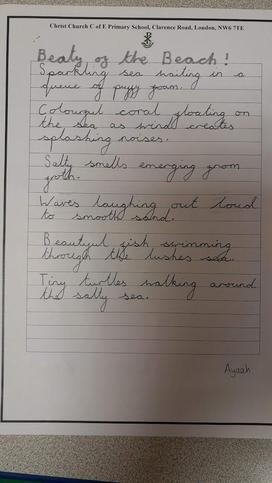 Christ Church C of E Primary School, Clarence Road, London, NW6 7TE
Beaty of the Beach!
Sparkling sea waiting in a
queue of puffy foam.
Colourful coral floating on
the sea as wind creates
splashing noises.
Salty smells emerging from
froth.
Waves laughing out loud
to smooth sand.
Beautiful fish swimming
through the lushes sea.
Tiny turtles walking around
the salty sea.
Ayaah